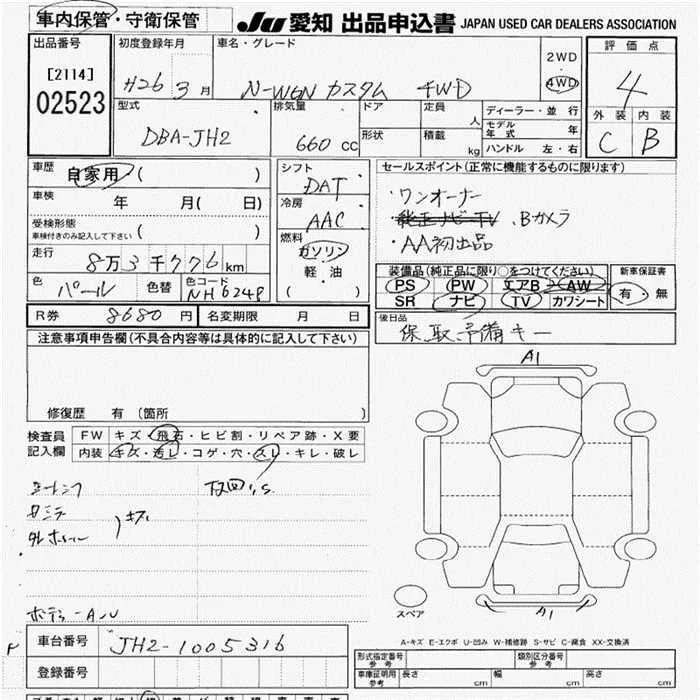 車内保管・守衛保管
JU 愛知 出品申込書 JAPAN USED CAR DEALERS ASSOCIATION
出品番号
[2114]
02523
初度登録年月
H26 3月
車名・グレード
N-WGN カスタム 4WD
2WD
4WD
評価点
4
外装 内装
C B
型式
DBA-JH2
排気量
660 cc
ドア
形状
定員
人
積載
kg
ディーラー・並行
モデル年式 年
ハンドル 左・右
車歴 自家用 ( )
車検 年 月( 日)
受検形態
車検付きのみ記入して下さい ( )
走行 8万3千776km
色 パール 色替 色コード NH624P
シフト
DAT
冷房
AAC
燃料
ガソリン
軽・油
( )
セールスポイント(正常に機能するものに限ります)
・ワンオーナー
・純正ナビTV、Bカメラ
・AA初出品
装備品(純正品に限り○をつけてください)
PS PW エアB AW
SR ナビ TV カワシート
新車保証書
有・無
R券 8680円 名変期限 月 日
後日品
保、取、予備キー
注意事項申告欄(不具合内容等は具体的に記入して下さい)
修復歴 有 (箇所 )
検査員記入欄
FW キズ・飛石・ヒビ割・リペア跡・X要
内装 キズ・汚レ・コゲ・穴・スレ・キレ・破レ
A1
A1
スペア
車台番号 JH2-1005316
登録番号
A-キズ E-エクボ U-凹み W-補修跡 S-サビ C-腐食 XX-交換済
形式指定番号 参考
類別区分番号 参考
車庫証明用 参考 長さ cm 幅 cm 高さ cm